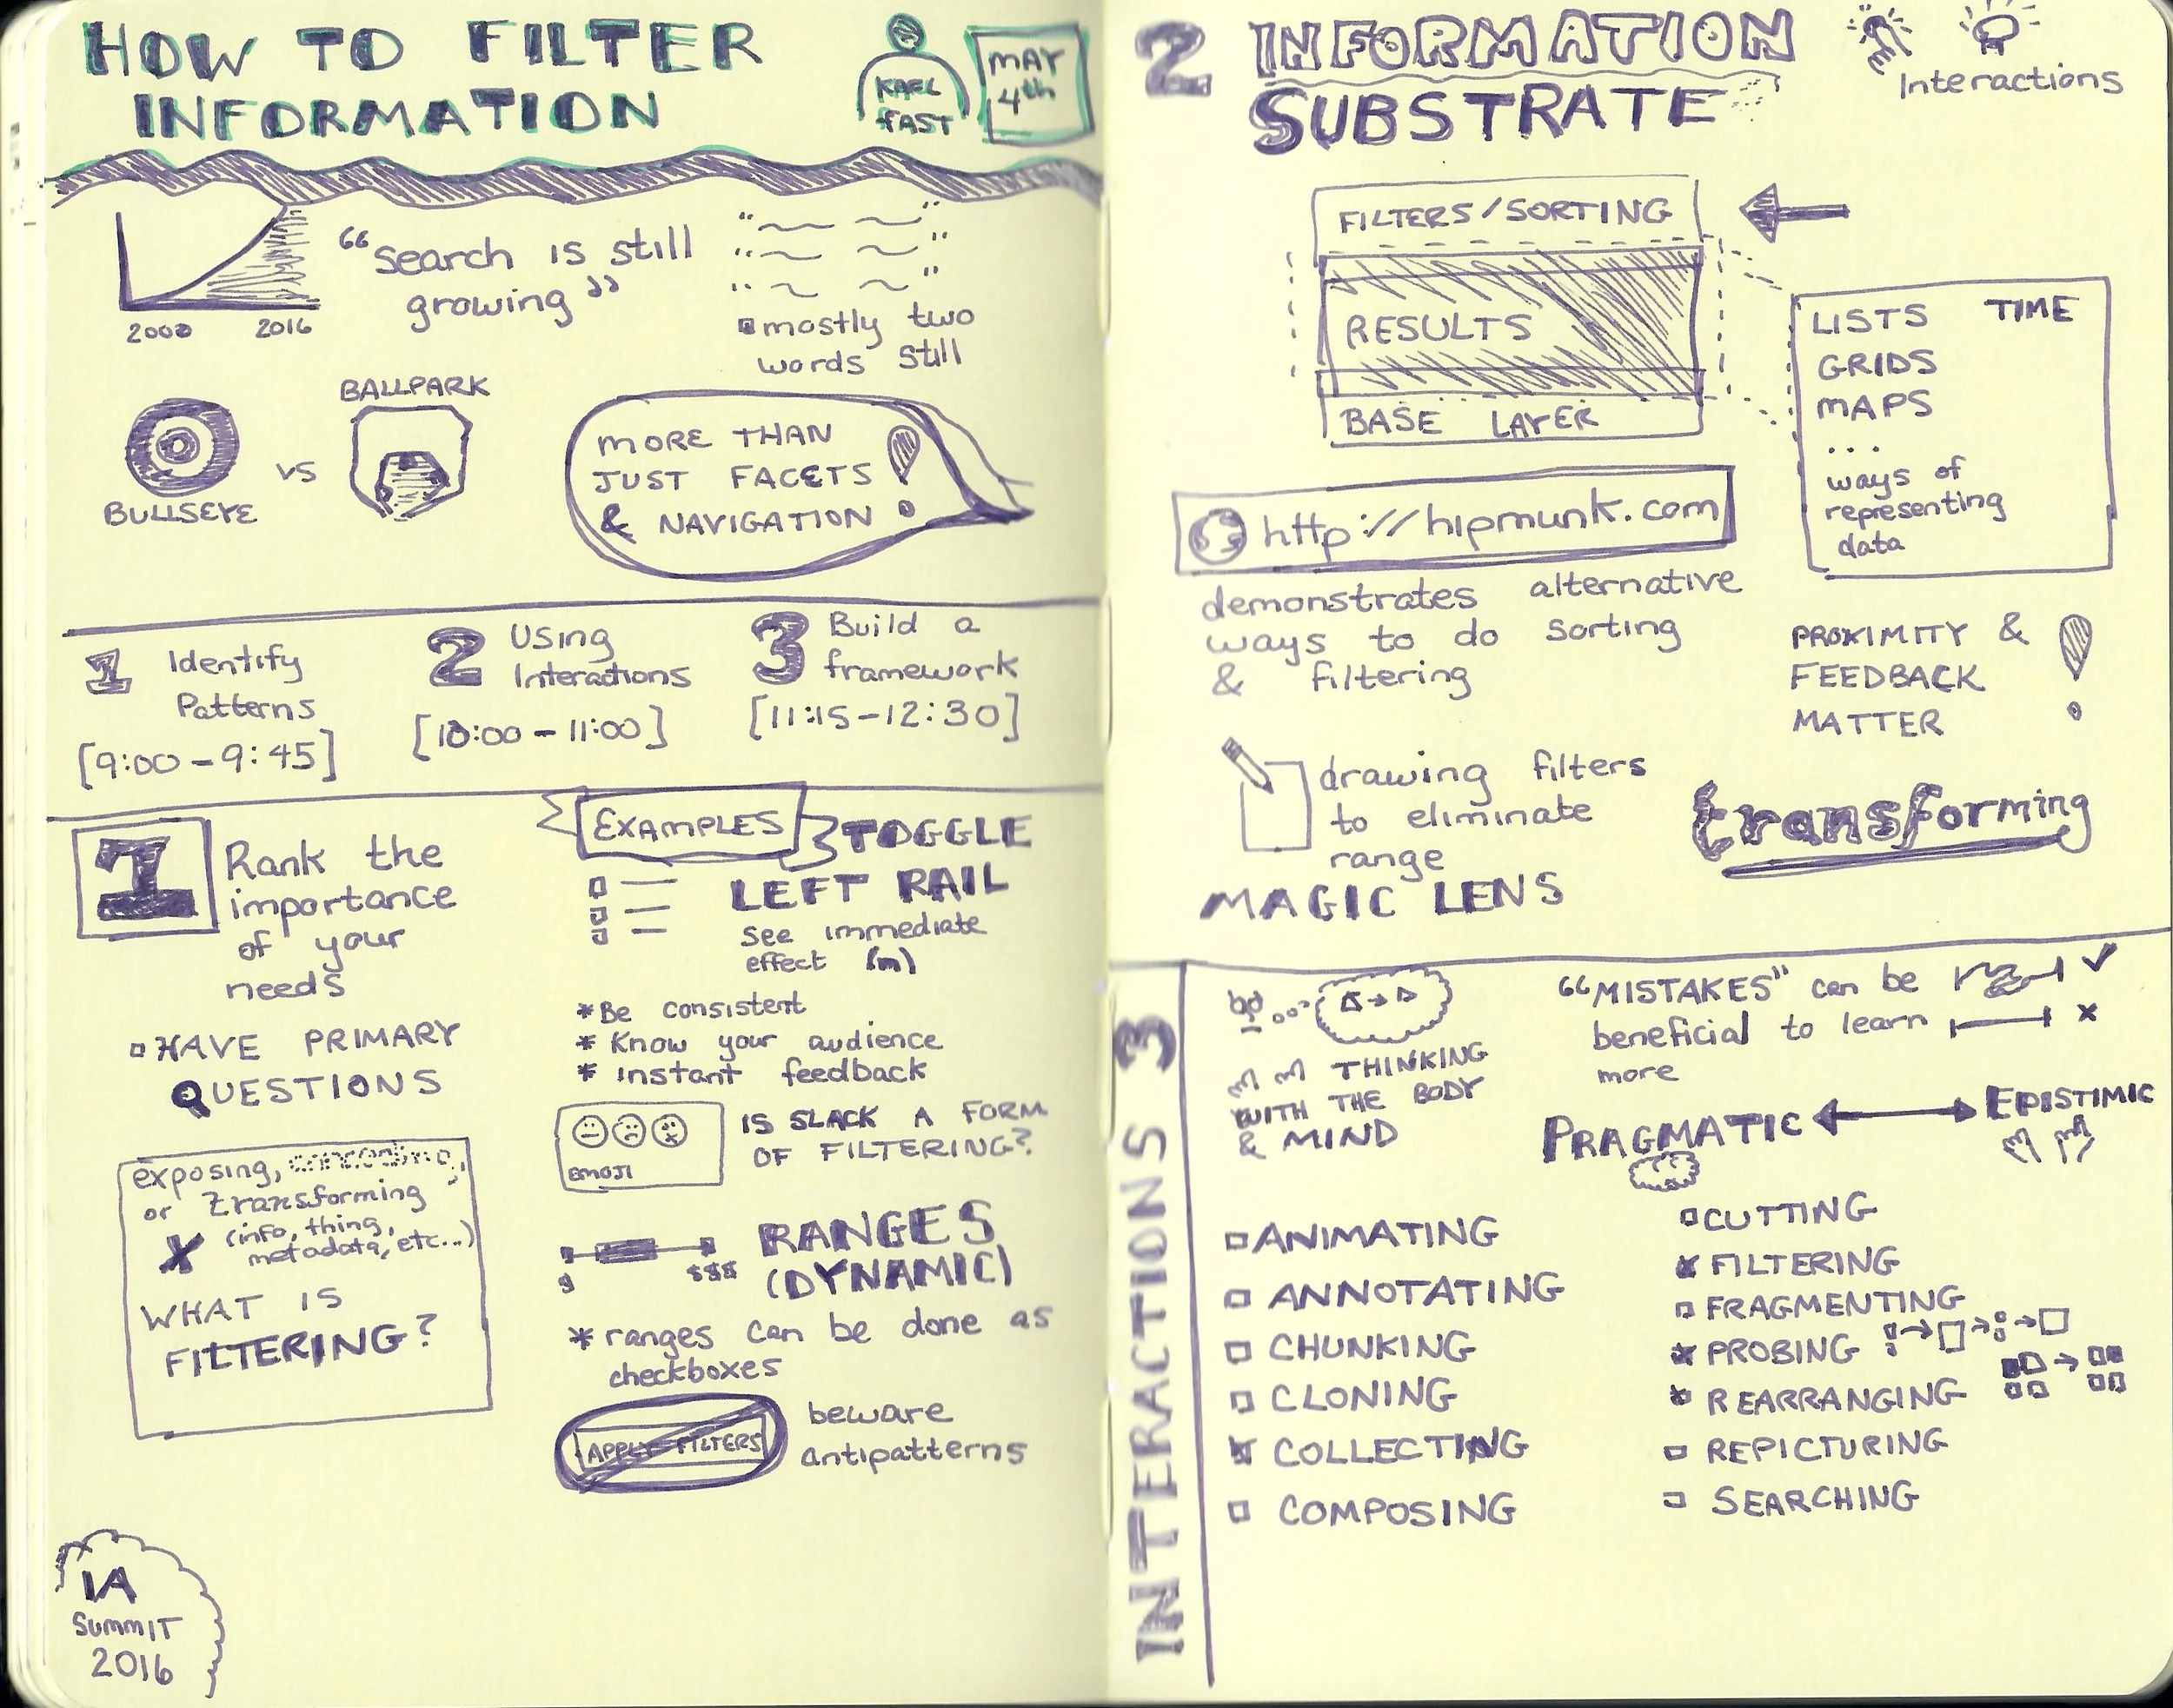 HOW TO FILTER
INFORMATION
KARL
FAST
MAY
4th
2000 2016
"search is still
growing"
mostly two
words still
BULLSEYE
vs
BALLPARK
MORE THAN
JUST FACETS
& NAVIGATION
1 Identify
Patterns
[9:00-9:45]
2 Using
Interactions
[10:00-11:00]
3 Build a
framework
[11:15-12:30]
1 Rank the
importance
of your
needs
HAVE PRIMARY
QUESTIONS
exposing,
or transforming
X (info, thing,
metadata, etc...)
WHAT IS
FILTERING?
IA
SUMMIT
2016
EXAMPLES
TOGGLE
LEFT RAIL
See immediate
effect (m)
* Be consistent
* Know your audience
* instant feedback
EMOJI
IS SLACK A FORM
OF FILTERING?
$ $$$
RANGES
(DYNAMIC)
* ranges can be done as
checkboxes
APPLY FILTERS
beware
antipatterns
2 INFORMATION
SUBSTRATE
Interactions
FILTERS/SORTING
RESULTS
BASE LAYER
LISTS TIME
GRIDS
MAPS
...
ways of
representing
data
http://hipmunk.com
demonstrates alternative
ways to do sorting
& filtering
PROXIMITY &
FEEDBACK
MATTER
drawing filters
to eliminate
range
transforming
MAGIC LENS
INTERACTIONS 3
THINKING
WITH THE BODY
& MIND
"MISTAKES" can be
beneficial to learn
more
PRAGMATIC
EPISTIMIC
ANIMATING
ANNOTATING
CHUNKING
CLONING
COLLECTING
COMPOSING
CUTTING
FILTERING
FRAGMENTING
PROBING
REARRANGING
REPICTURING
SEARCHING